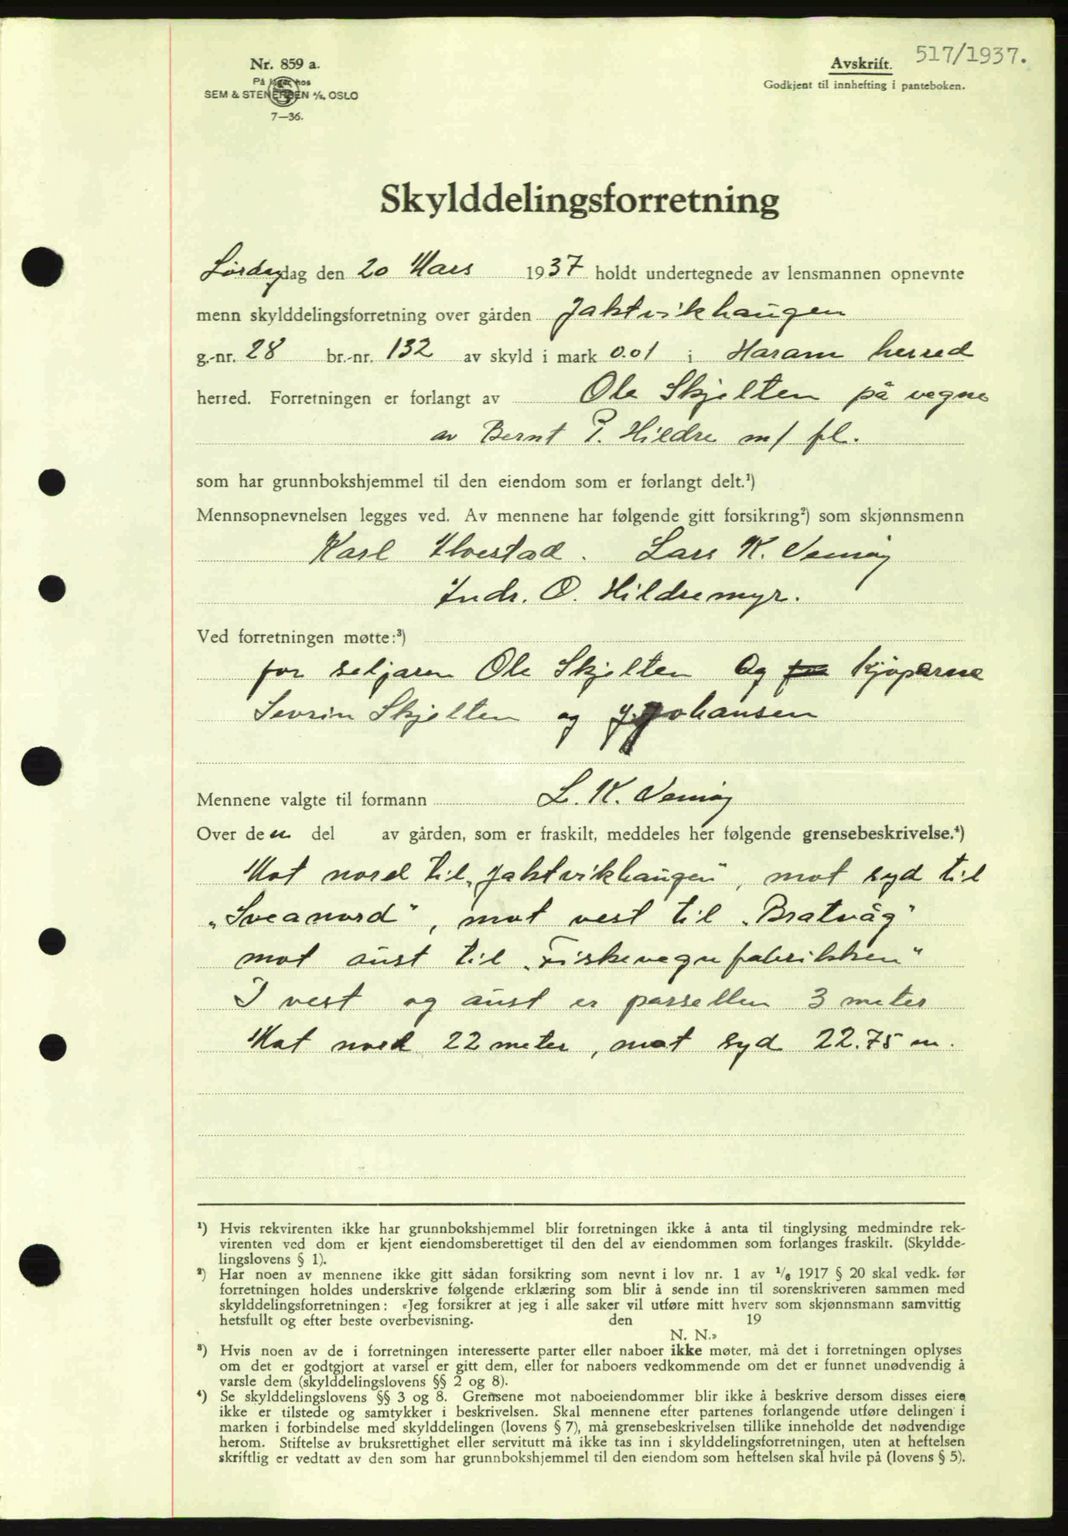 517/1937.
Nr. 859 a.
På lager hos
SEM & STENERSEN A/S, OSLO
7—36.
Avskrift.
Godkjent til innhefting i panteboken.
Skylddelingsforretning
Lørdag dag den 20 Mars 1937 holdt undertegnede av lensmannen opnevnte
menn skylddelingsforretning over gården Jaktvikhaugen
g.-nr. 28 br.-nr. 132 av skyld i mark 0.01 i Haram herred
herred. Forretningen er forlangt av Ole Skjelten på vegne
av Bernt P. Hildre m/ fl.
som har grunnbokshjemmel til den eiendom som er forlangt delt.¹)
Mennsopnevnelsen legges ved. Av mennene har følgende gitt forsikring²) som skjønnsmenn
Karl Ulvestad. Lars K. Vemøy
Indr. O. Hildremyr.
Ved forretningen møtte:³)
for seljaren Ole Skjelten Og kjøparene
Sevrin Skjelten og J. Johansen
Mennene valgte til formann L. K. Vemøy
Over den del av gården, som er fraskilt, meddeles her følgende grensebeskrivelse.⁴)
Mot nord til „Jaktvikhaugen", mot syd til
„Sveanord", mot vest til „Bratvåg"
mot aust til „Fiskevegnfabrikken"
I vest og aust er parsellen 3 meter
Mot nord 22 meter, mot syd 22.75 m.
¹) Hvis rekvirenten ikke har grunnbokshjemmel blir forretningen ikke å anta til tinglysing medmindre rek-
virenten ved dom er kjent eiendomsberettiget til den del av eiendommen som forlanges fraskilt. (Skyldde-
lingslovens § 1).
²) Har noen av mennene ikke gitt sådan forsikring som nevnt i lov nr. 1 av 1/6 1917 § 20 skal vedk. før
forretningen holdes underskrive følgende erklæring som blir å sende inn til sorenskriveren sammen med
skylddelingsforretningen: «Jeg forsikrer at jeg i alle saker vil utføre mitt hverv som skjønnsmann samvittig
hetsfullt og efter beste overbevisning. den 19
N. N.»
³) Hvis noen av de i forretningen interesserte parter eller naboer ikke møter, må det i forretningen oplyses
om det er godtgjort at varsel er gitt dem, eller for naboers vedkommende om det er funnet unødvendig å
varsle dem (skylddelingslovens §§ 2 og 8).
⁴) Se skylddelingslovens §§ 3 og 8. Grensene mot naboeiendommer blir ikke å beskrive dersom disses eiere
ikke er tilstede og samtykker i beskrivelsen. Skal mennene efter partenes forlangende utføre delingen i
marken i forbindelse med skylddelingen (lovens § 7), må grensebeskrivelsen tillike inneholde det nødvendige
herom. Stiftelse av bruksrettighet eller servitutt må ikke tas inn i skylddelingsforretningen, uten at heftelsen
skriftlig er vedtatt av den som har grunnbokshjemmel til den eiendom som heftelsen skal hvile på (lovens § 5).